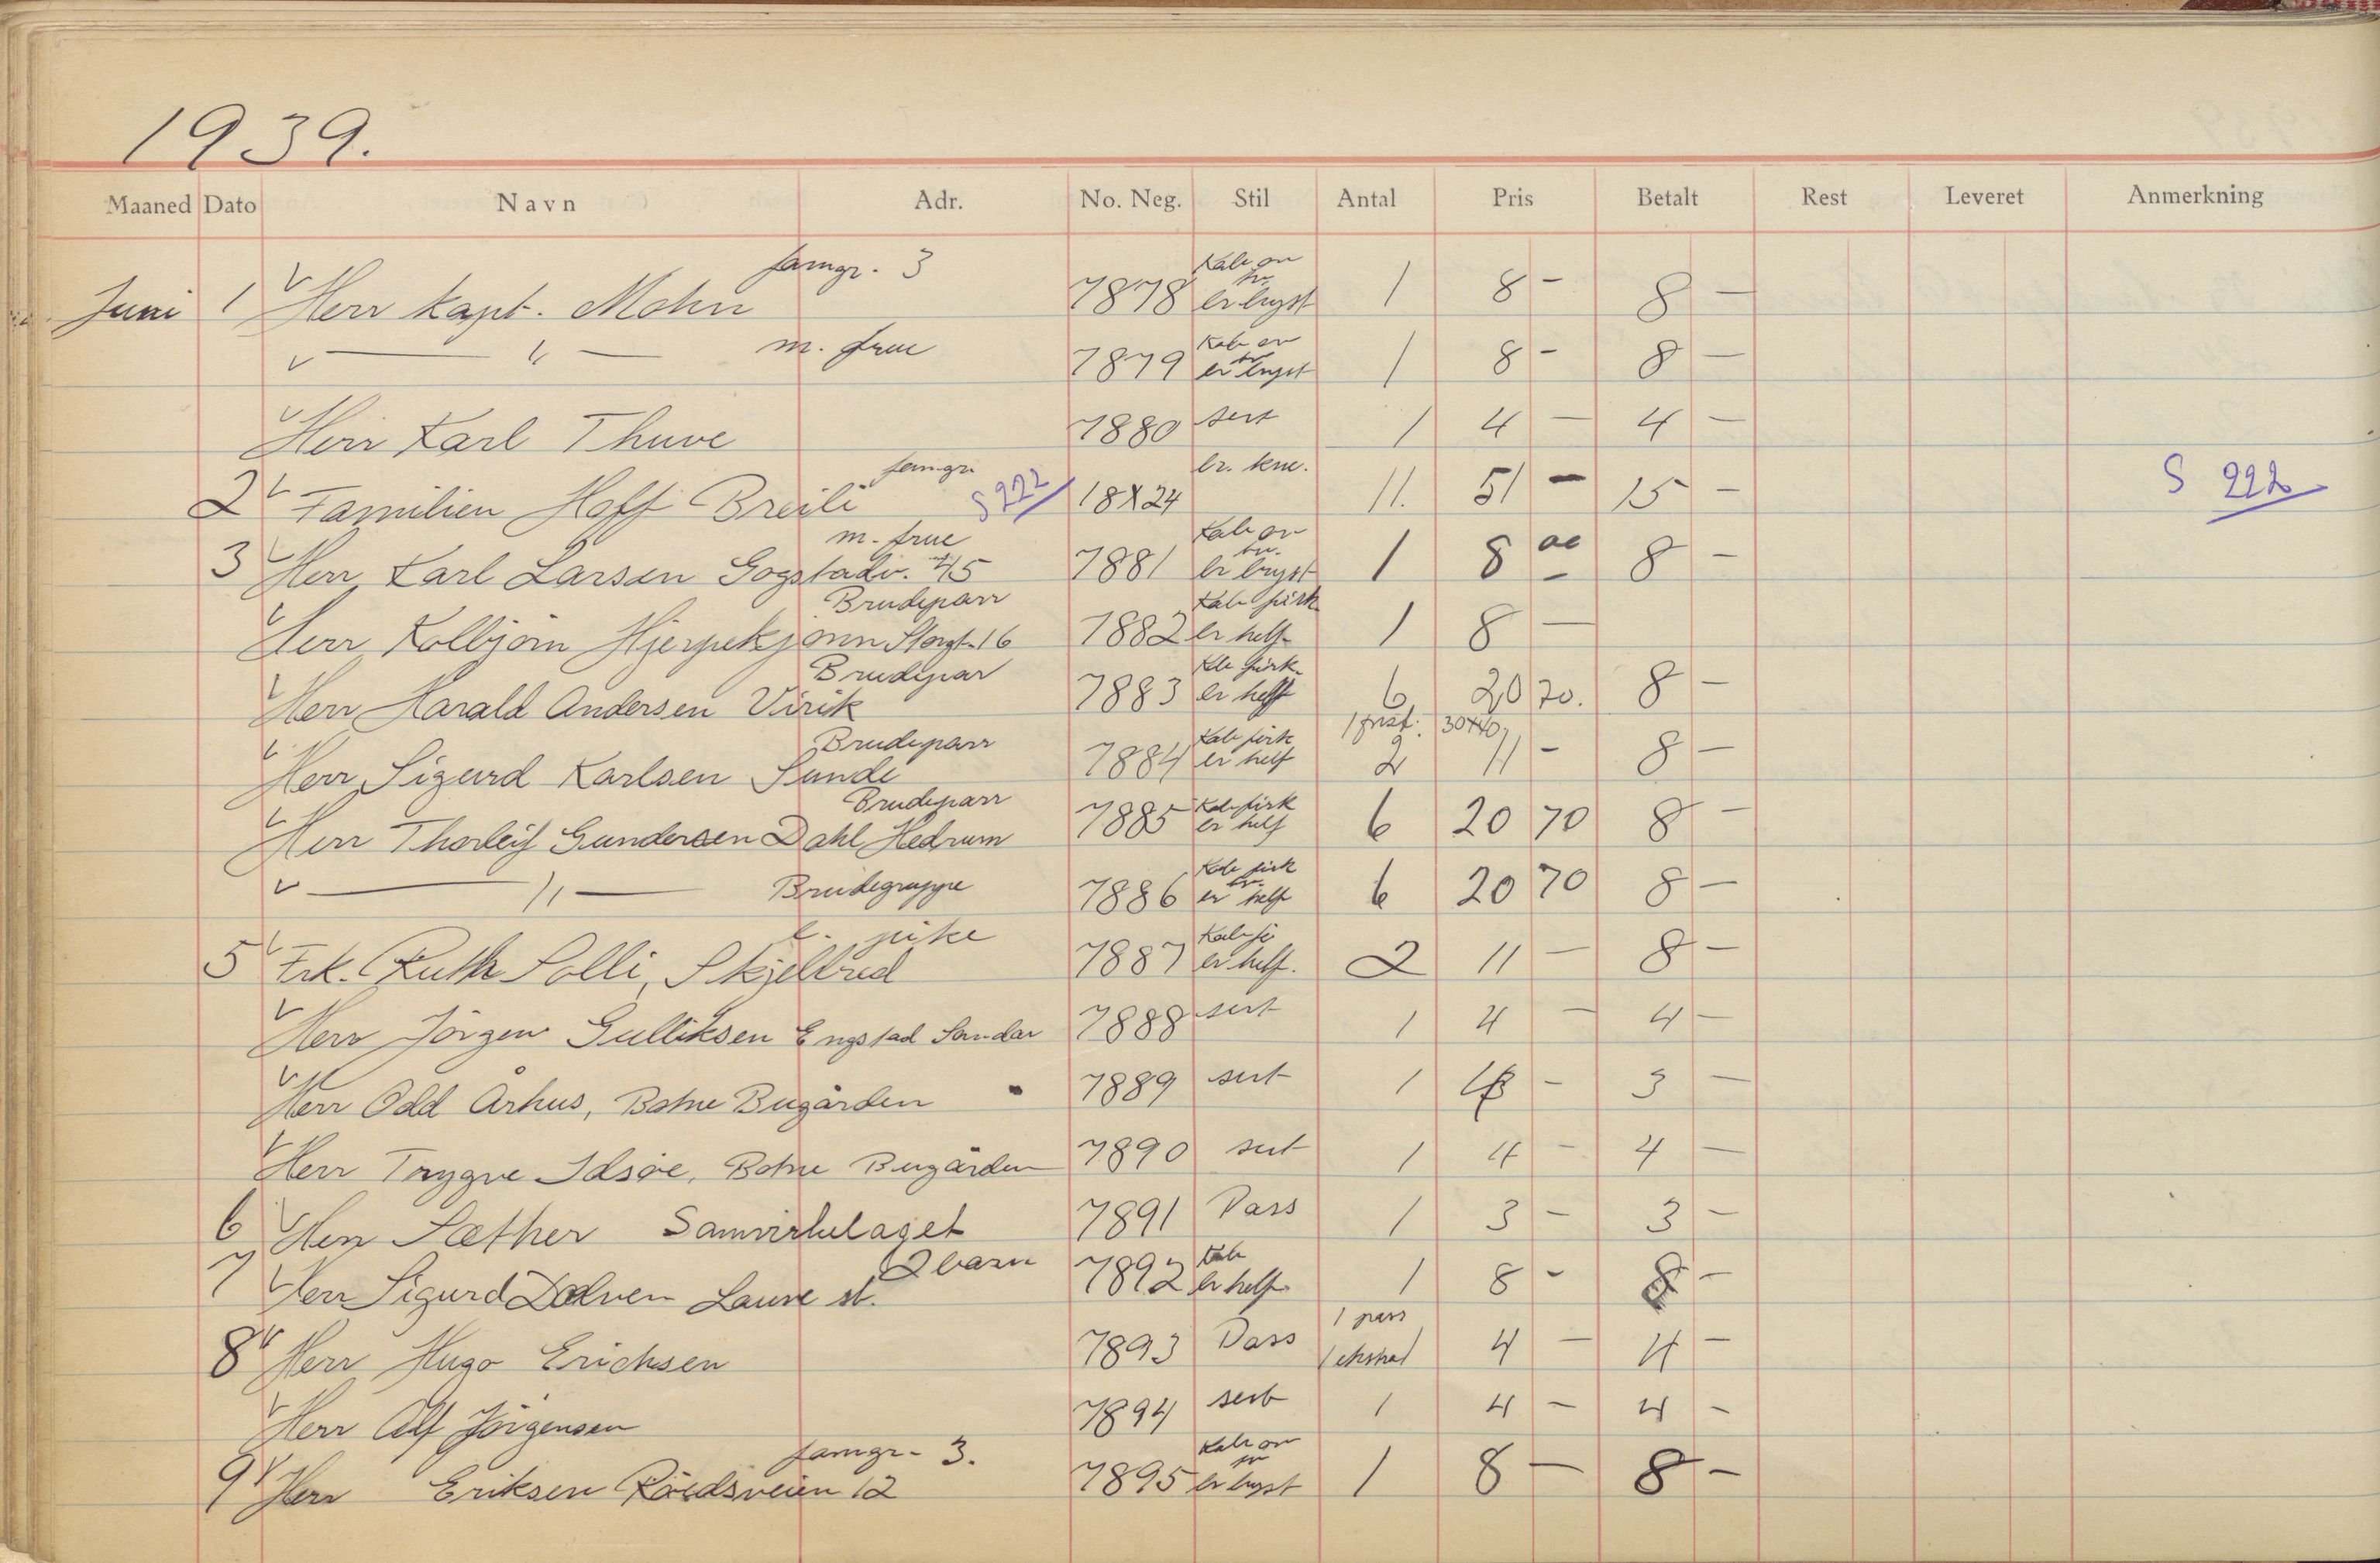 1939.
Maaned Dato Navn Adr. No. Neg. Stil Antal Pris Betalt Rest Leveret Anmerkning
famgr. 3 Kab
Juni 1 Herr kapt. Mohn 7878 br. bryst 1 8 - 8 -
" m. frue 7879 bryst 1 8 - 8 -
Herr Karl Thuve 7880 sert 1 4 - 4 -
famgr. br. kne.
2 Familien Hoff Breili S 222 18X24 11. 51 - 15 - S 222
m. frue Kab
3 Herr Karl Larsen Gogstadv. 45 7881 br bryst 1 8 00 8 -
Brudeparr Kab
Herr Kolbjørn Hjerpekjønn Storgt. 16 7882 er helf 1 8 -
Brudepar
Herr Harald Andersen Virik 7883 er helf 6 20 70. 8 -
Brudeparr Kab 30X40
Herr Sigurd Karlsen Sunde 7884 er helf 2 11 - 8 -
Brudeparr
Herr Thorleif Gundersen Dahl Hedrum 7885 er helf 6 20 70 8 -
" Brudegruppe 7886 er helf 6 20 70 8 -
l. pike
5 Frk. Ruth Solli, Skjelbred 7887 er helf. 2 11 - 8 -
Herr Jörgen Gulliksen Engstad Sandar 7888 sert 1 4 - 4 -
Herr Odd Århus, Botne Bugården 7889 sert 1 - 3 -
Herr Trygve Idsøe, Botne Bugården 7890 sert 1 4 - 4 -
6 Herr Sæther Samvirkelaget 7891 Pass 1 3 - 3 -
2 barn Kab
7 Herr Sigurd Dølven Lauve st. 7892 er helf 1 8 - 8 -
1 pass
8 Herr Hugo Erichsen 7893 Pass 1 4 - 4 -
Herr Alf Jörgensen 7894 sert 1 4 - 4 -
famgr. 3. Kab
9 Herr Eriksen Rødsveien 12 7895 br bryst 1 8 - 8 -